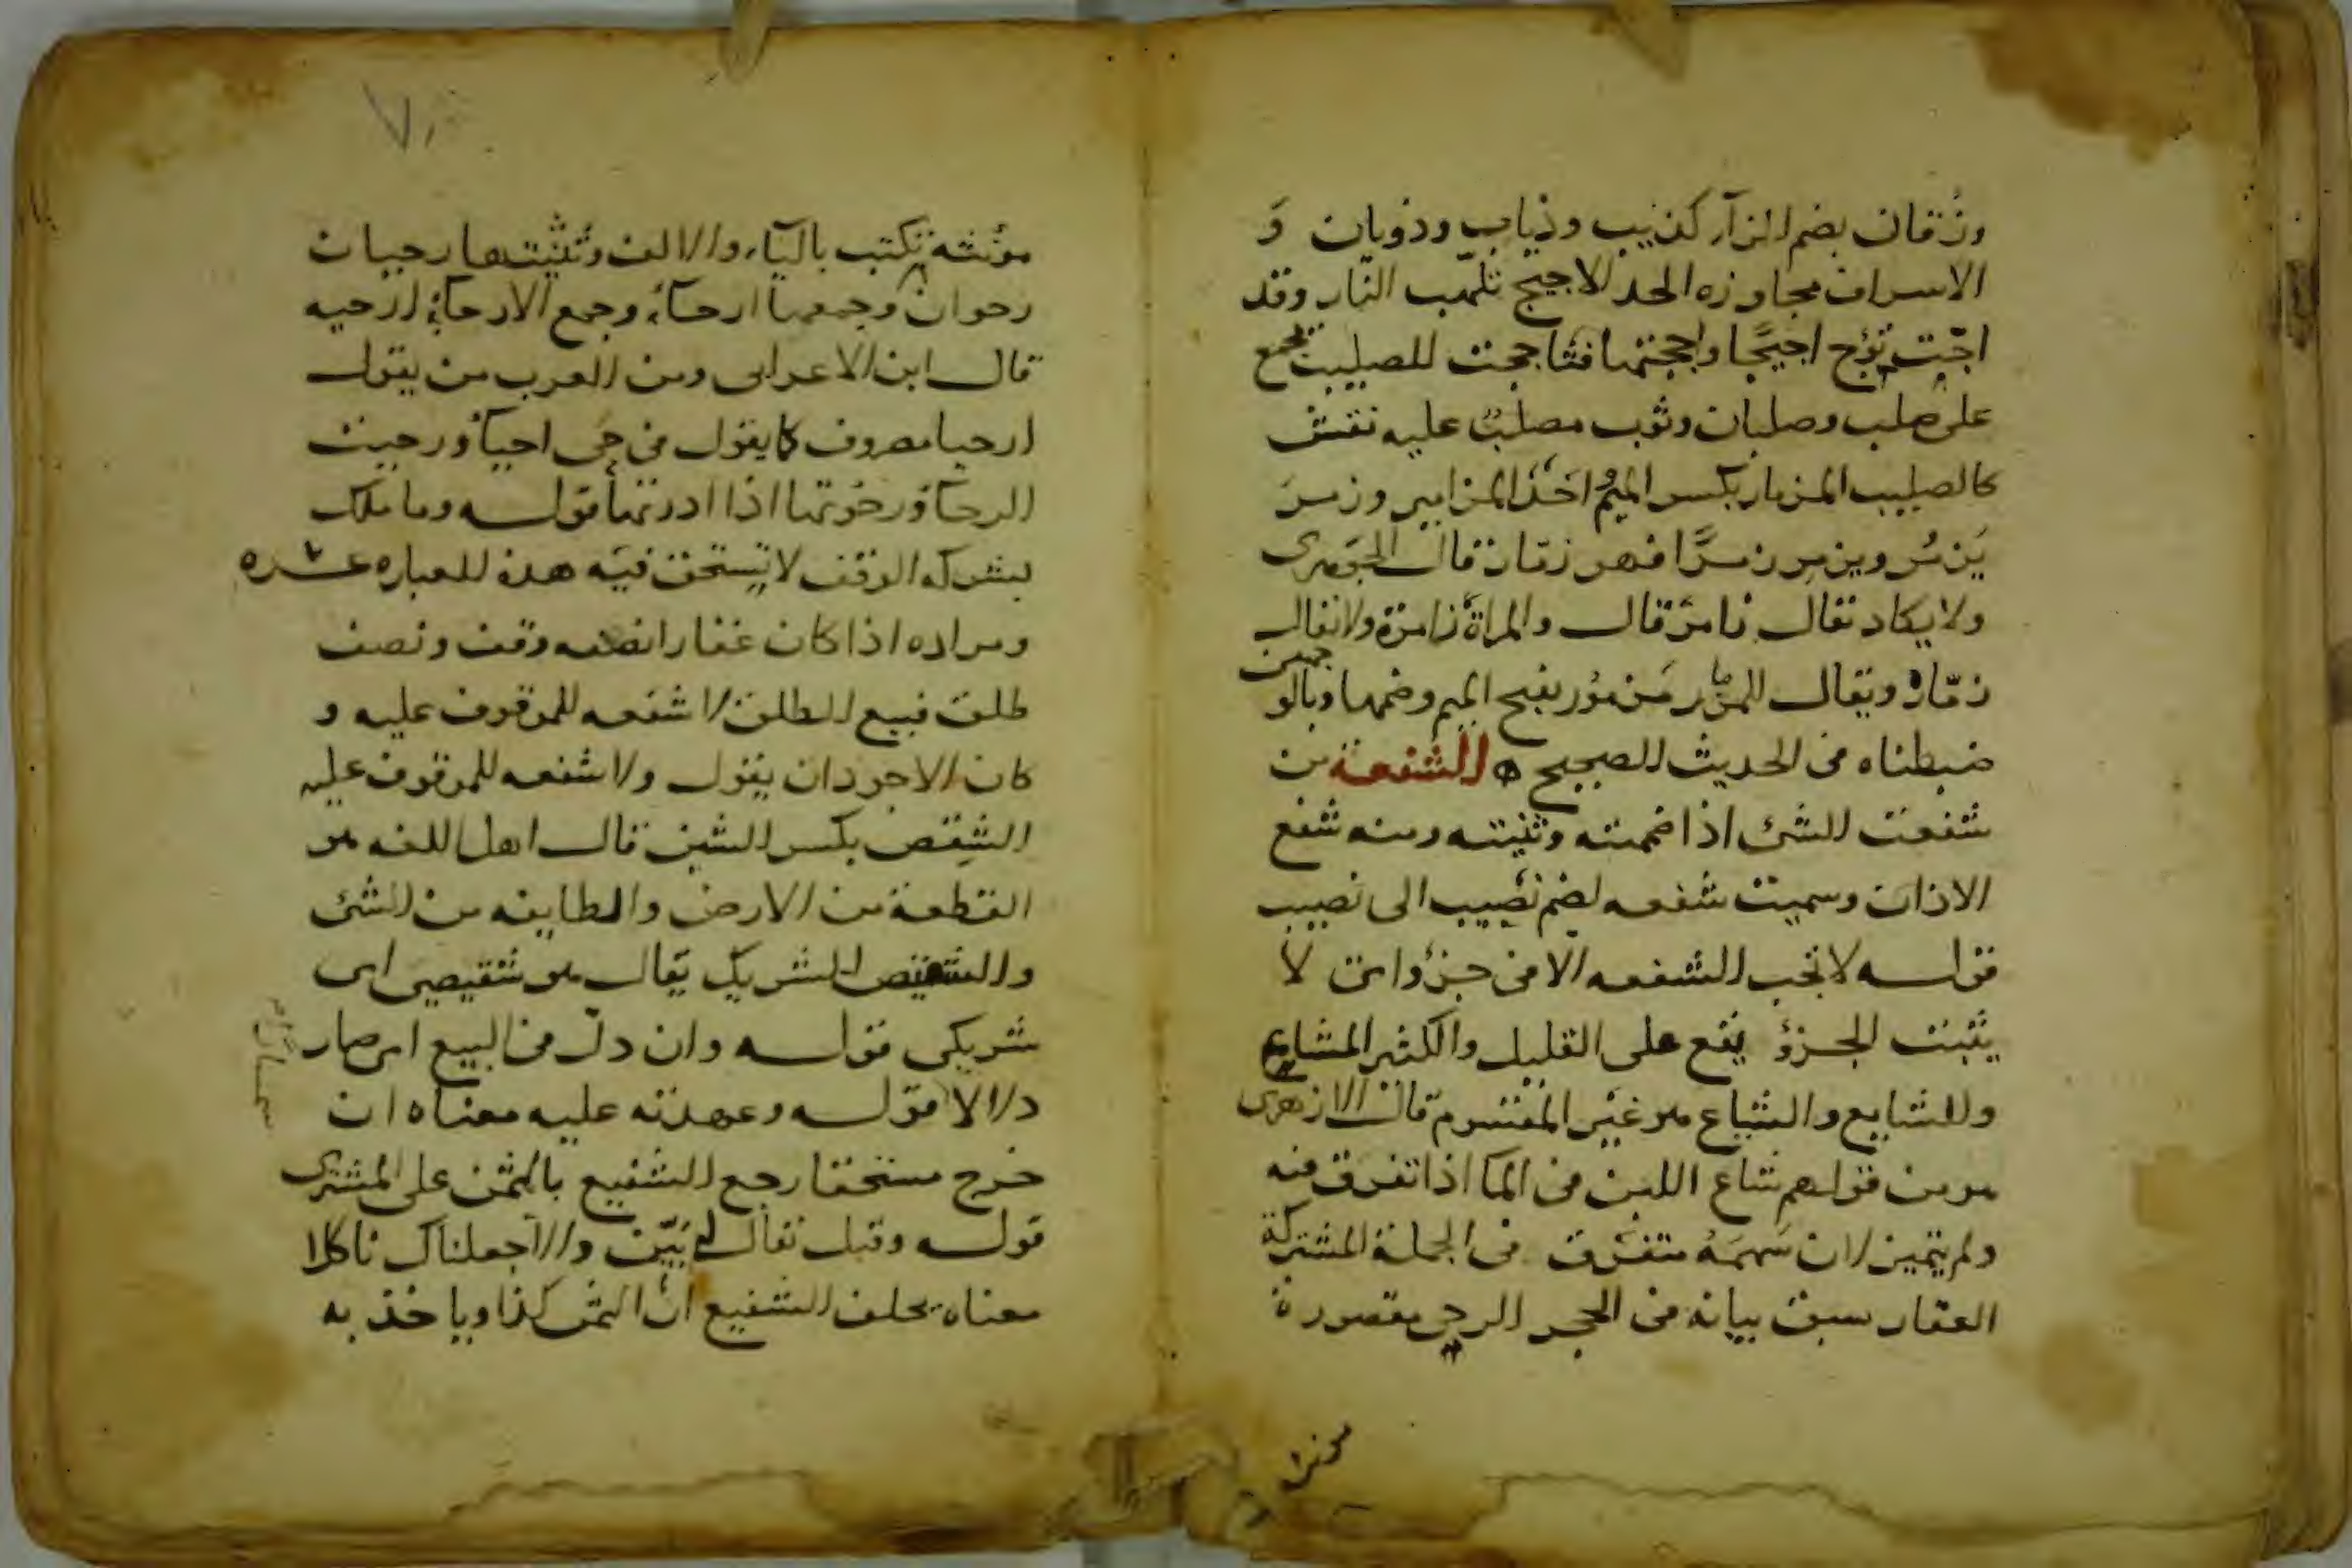 وزقان بضم الزآ كذيب وذياب وذوبان و
الاسراف مجاوزه الحد الاجيج تلهب النار وقد
اجّت تؤج اجيجًا واججتها فتاججت الصليب تجمع
على صلب وصلبان وثوب مصلب عليه نقش
كالصليب المزمار بكسر الميم احد المزامير وزمرَ
يَزمُر ويزمِر زمرًا فهو زمّار قال الجوهرى
ولا يكاد يقال زامر قال والمراة زامرة ولا يقال
زمّارة ويقال للمزمار مَزمُور بفتح الميم وضمها وبالوجهين
ضبطناه فى الحديث الصحيح ه الشفعة من
شفعت الشئ اذا ضممته وثنيته ومنه شفع
الاذان وسميت شفعه لضم نصيب الى نصيب
قوله لا تجب الشفعه الا فى جزؤ اى لا
يثبت الجزؤ يقع على القليل والكثير المشاع
والشايع والشياع هو غير المقسوم قال الازهرى
هو من قولهم شاع اللبن فى الما اذا تفرق فيه
ولم يتميز لان سهمَهُ متفرق فى الجملة المشتركة
العقار سبق بيانه فى الحجر الرحى مقصورة
مونثه
مؤنثه تكتب باليآء والالف وتثنيتها رحيان
رحوان وجمعها ارحآء وجمع الارحآء ارحيه
قال ابن الاعرابى ومن العرب من يقول
ارحيا مصروف كا يقول فى حَى احيآ ورحيت
الرحآ ورحوتها اذا ادرتها قوله وما ملك
بشركه الوقف لا تستحق فيه هذه العباره عسره
ومراده اذا كان عقارا نصفه وقف ونصف
طلق فبيع الطلق لا شفعه للموقوف عليه و
كان الاجود ان يقول ولا شفعه للموقوف عليه
الشِقص بكسر الشين قال اهل اللغه هو
القطعة من الارض والطايفه من الشئ
والشقيص الشريك يقال هو شقيصى اى
شريكى قوله وان دلّ فى البيع اى صار
دلالا قوله وعهدته عليه معناه ان
خرج مستحقا رجع الشفيع بالثمن على المشترى
قوله وقيل يقال له بَيّن والا جعلناك ناكلا
معناه يحلف الشفيع ان الثمن كذا وياخذ به